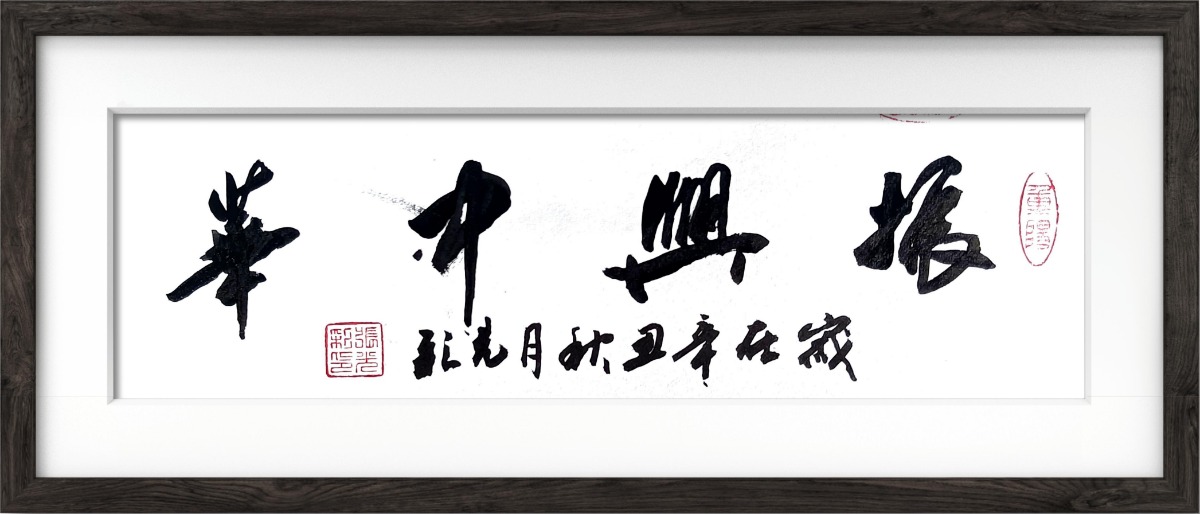 振興中華
歲在辛丑秋月光